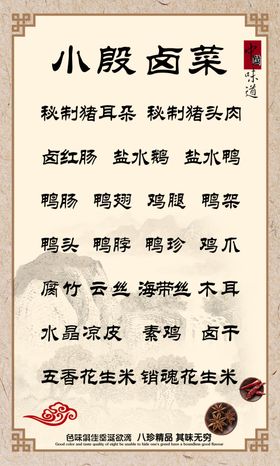 小段卤菜
中國味道
秘制猪耳朵 秘制猪头肉
卤红肠 盐水鹅 盐水鸭
鸭肠 鸭翅 鸡腿 鸭架
鸭头 鸭脖 鸭珍 鸡爪
腐竹 云丝 海带丝 木耳
水晶凉皮 素鸡 卤干
五香花生米 销魂花生米
色味俱佳垂涎欲滴 八珍精品 其味无穷